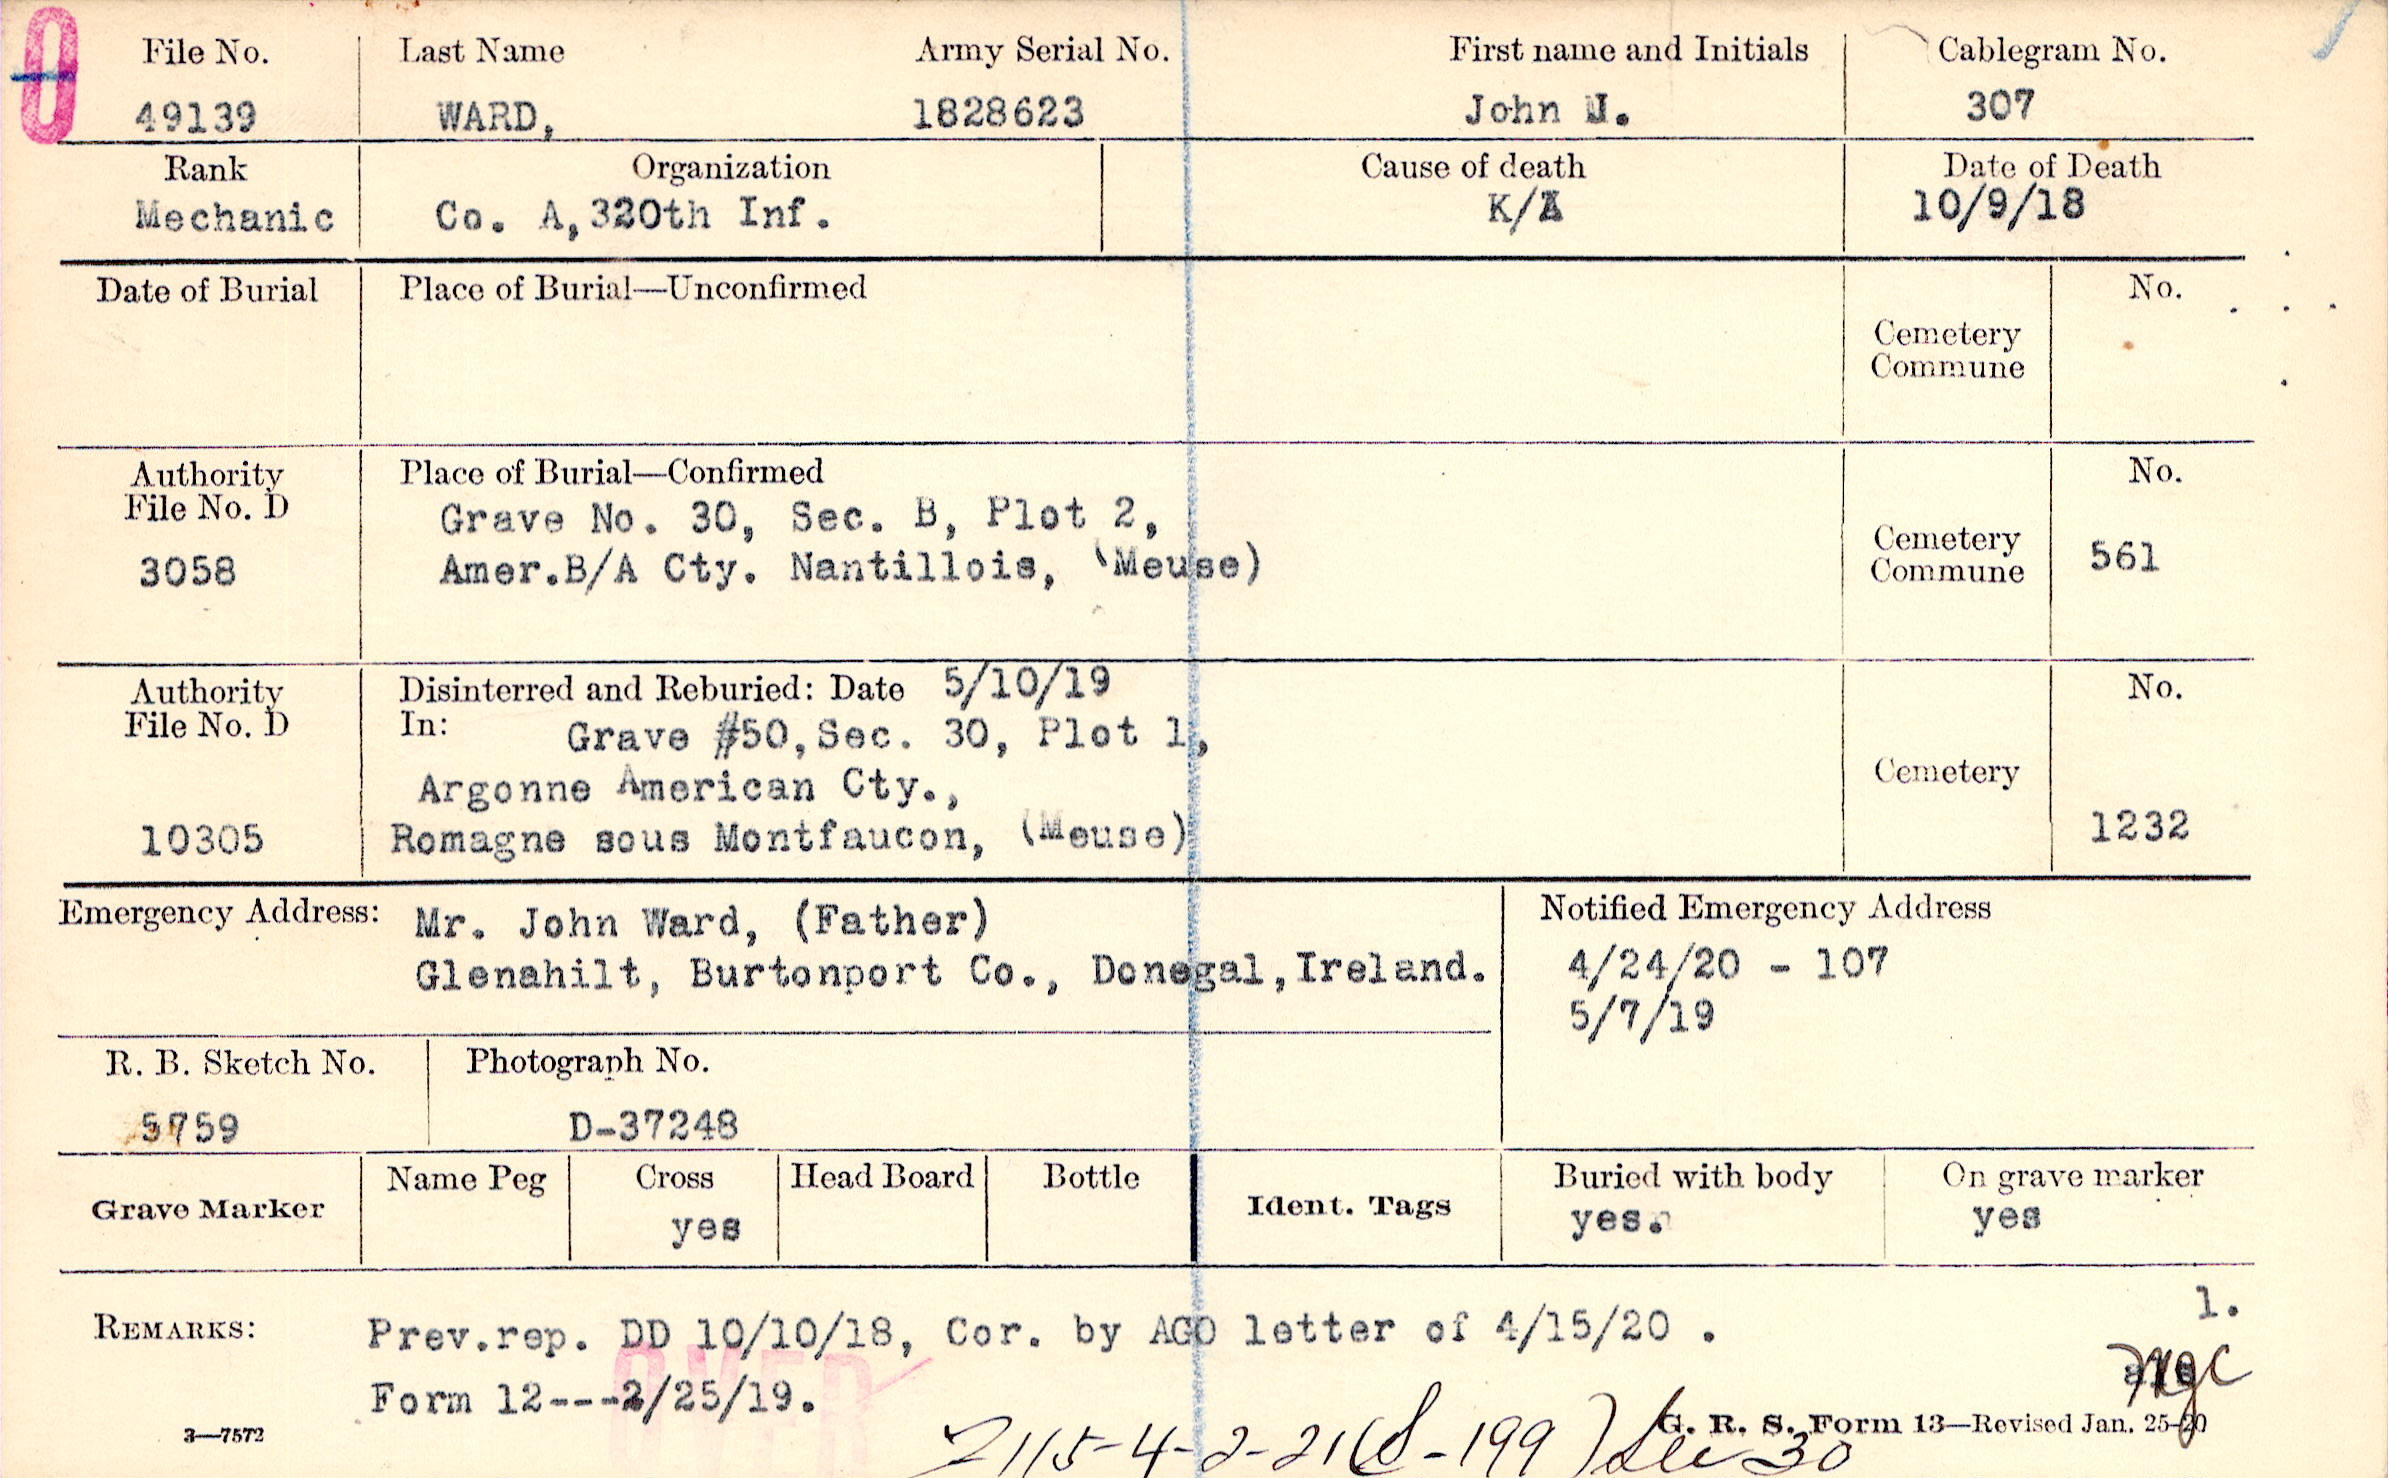 File No. Last Name Army Serial No. First name and Initials Cablegram No.
49139 WARD, 1828623 John J. 307
Rank Organization Cause of death Date of Death
Mechanic Co. A, 320th Inf. K/A 10/9/18
Date of Burial Place of Burial—Unconfirmed No.
Cemetery
Commune
Authority Place of Burial—Confirmed No.
File No. D Grave No. 30, Sec. B, Plot 2,
3058 Amer.B/A Cty. Nantillois, (Meuse) Cemetery
Commune 561
Authority Disinterred and Reburied: Date 5/10/19 No.
File No. D In: Grave #50, Sec. 30, Plot 1,
Argonne American Cty., Cemetery
10305 Romagne sous Montfaucon, (Meuse) 1232
Emergency Address: Mr. John Ward, (Father) Notified Emergency Address
Glenahilt, Burtonport Co., Donegal, Ireland. 4/24/20 - 107
5/7/19
R. B. Sketch No. Photograph No.
5759 D-37248
Grave Marker Name Peg Cross Head Board Bottle Ident. Tags Buried with body On grave marker
yes yes. yes
1.
REMARKS: Prev.rep. DD 10/10/18, Cor. by AGO letter of 4/15/20 .
OVER
Form 12---2/25/19.
3—7572 G. R. S. Form 13—Revised Jan. 25-20
2115-4-2-21(S-199)